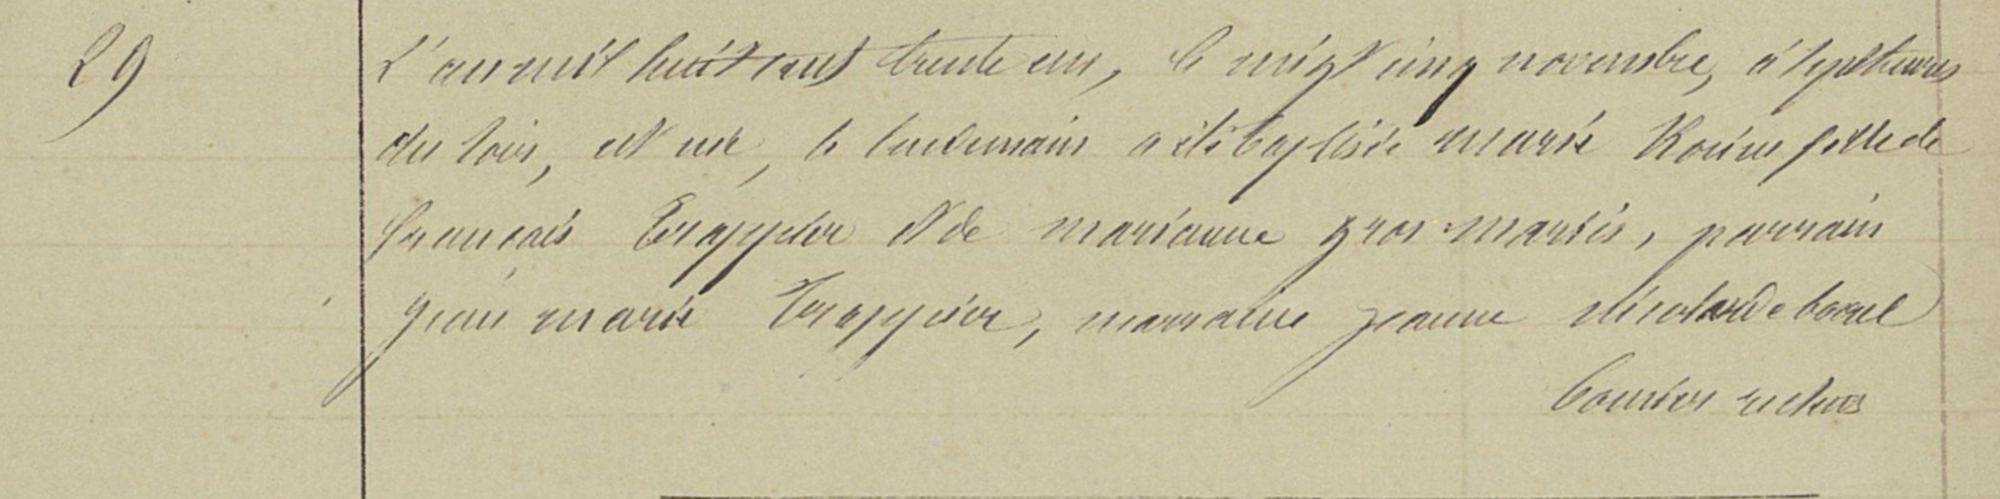 29
L'an mil huit cent trente un, le vingt cinq novembre, à sept heures
du soir, est née, le lendemain a été baptisée marie Rosine fille de
français Trappier et de marianne gros-marsis, parrain
jean marie Trappier, marraine jeanne
Courier recteur